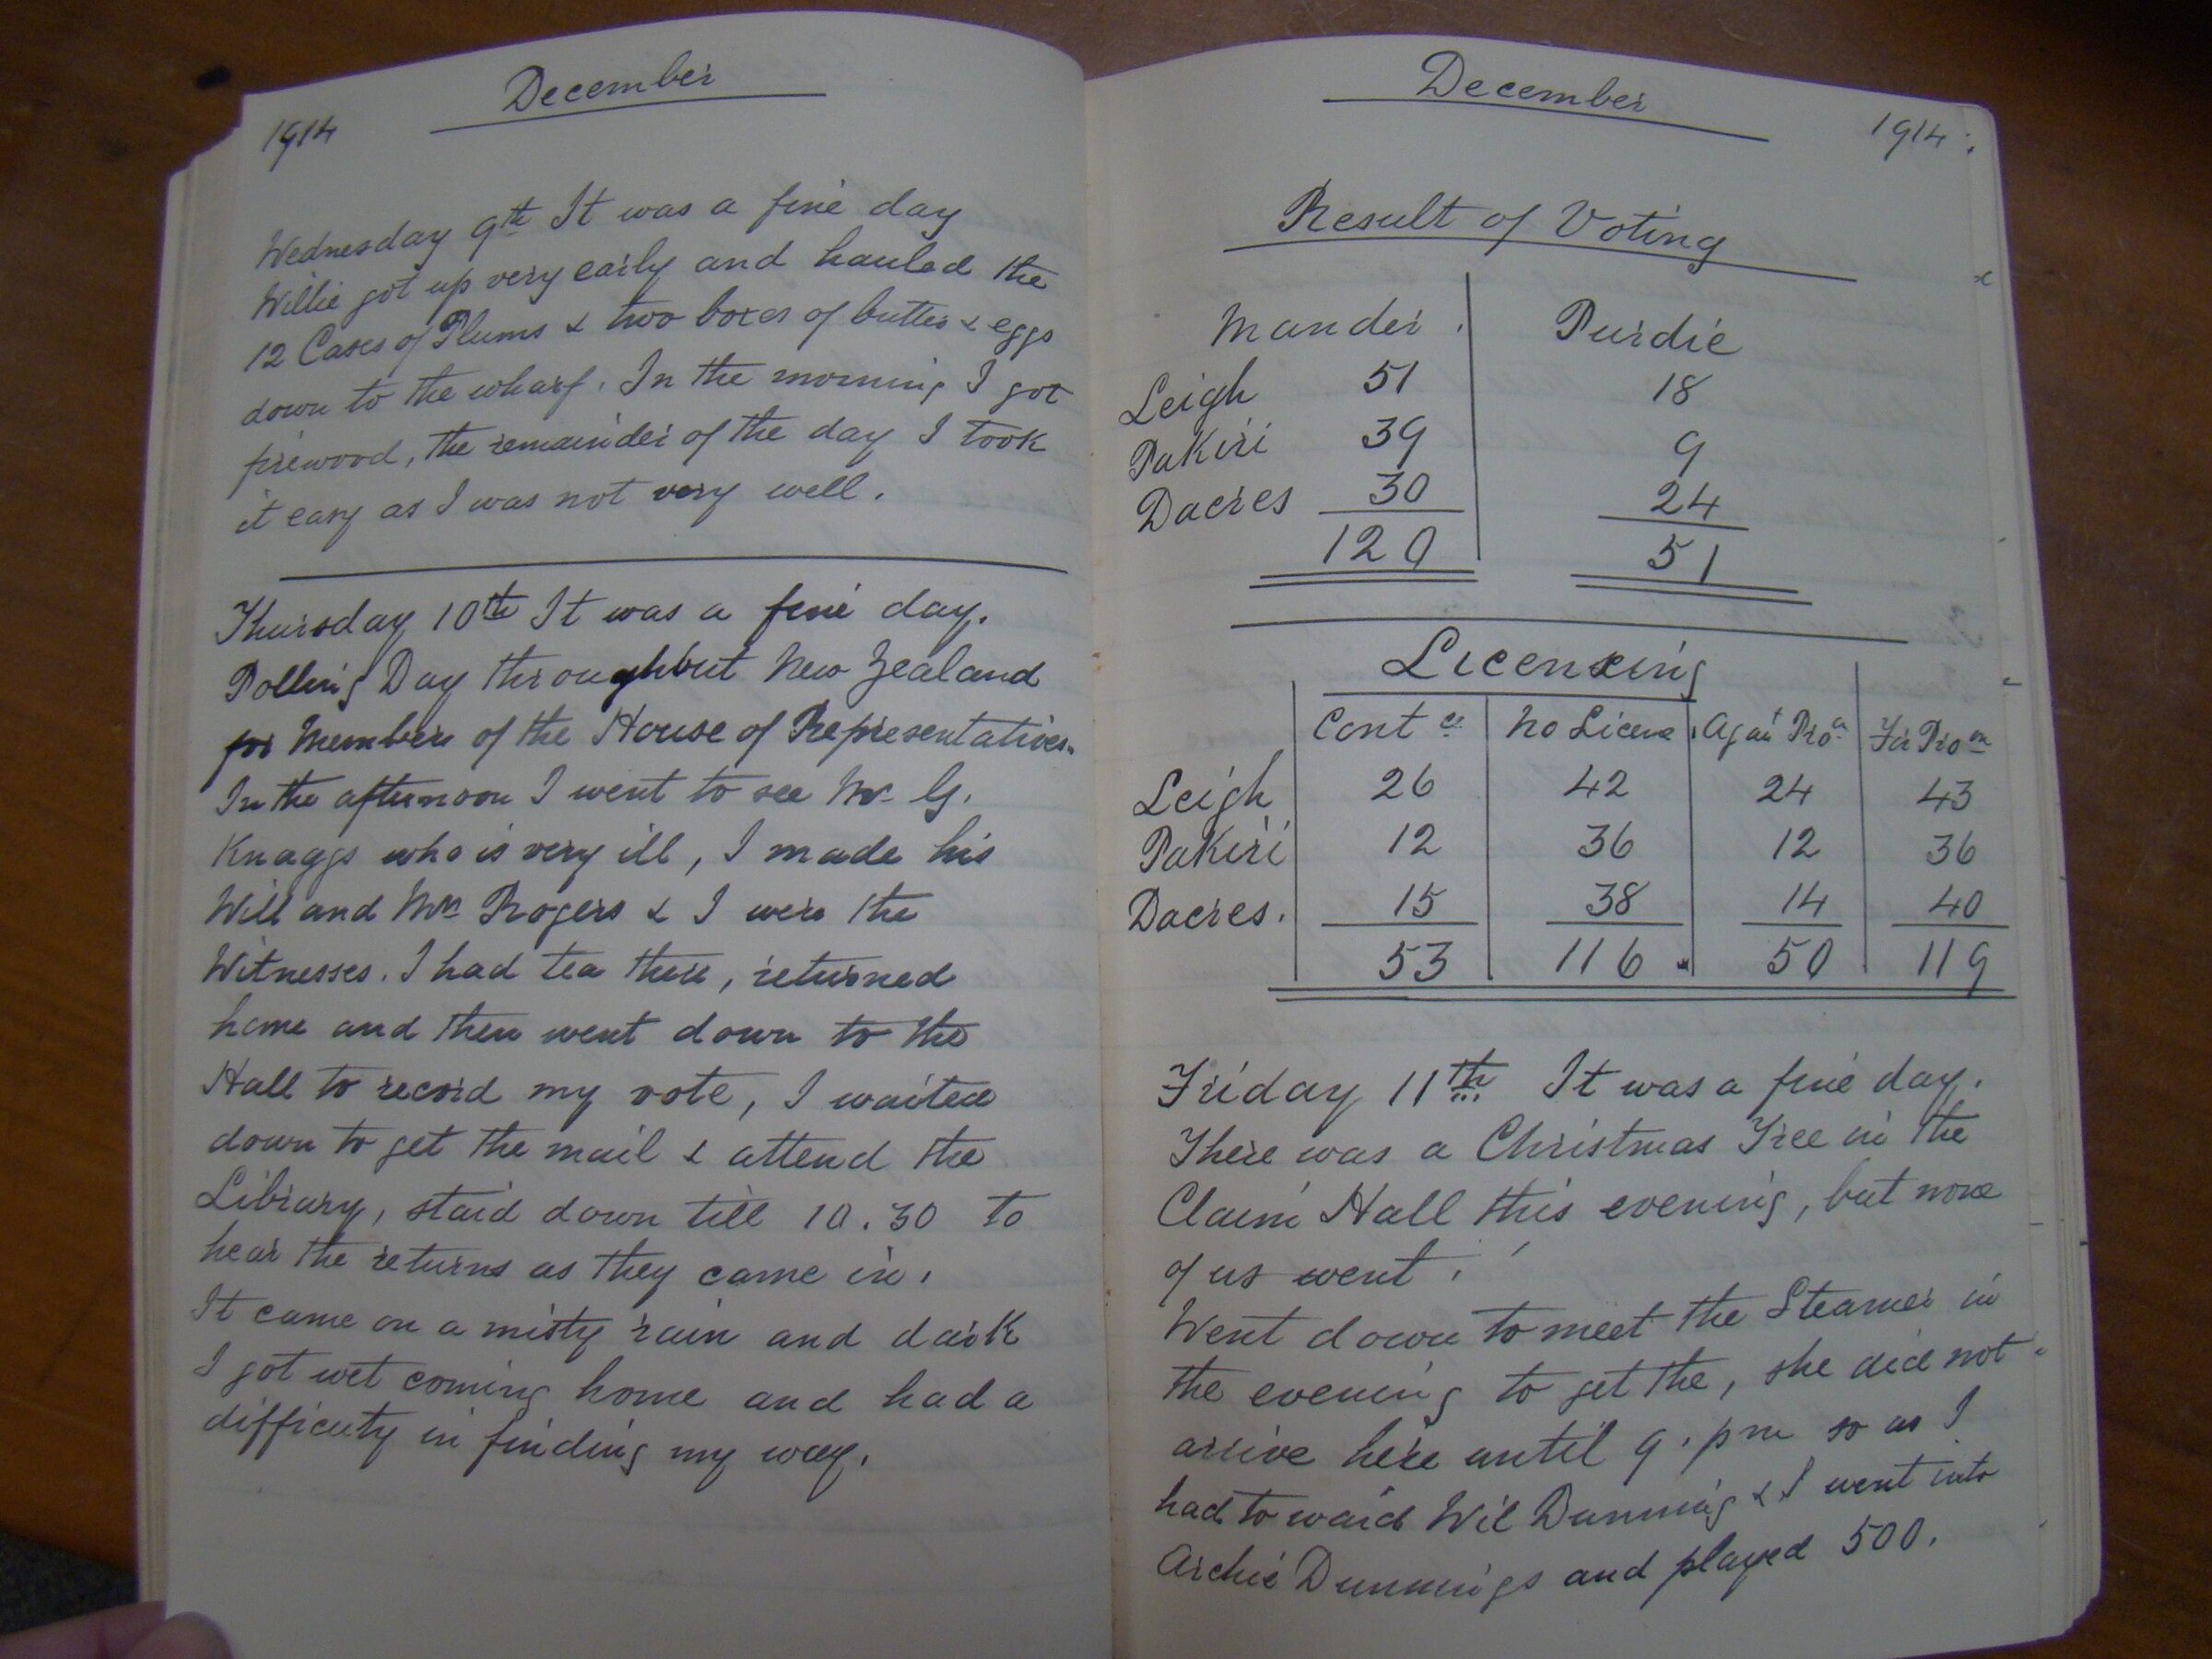 December
1914
Wednesday 9th It was a fine day
Willie got up very early and hauled the
12 Cases of Plums & two boxes of butter & eggs
down to the wharf. In the morning I got
firewood, the remainder of the day I took
it easy as I was not very well.
Thursday 10th It was a fine day.
Polling Day throughout New Zealand
for Members of the House of Representatives.
In the afternoon I went to see Mr G.
Knaggs who is very ill, I made his
Will and Mrs Rogers & I were the
Witnesses. I had tea there, returned
home and then went down to the
Hall to record my vote, I waited
down to get the mail & attend the
Library, staid down till 10.30 to
hear the returns as they came in.
It came on a misty rain and dark
I got wet coming home and had a
difficuty in finding my way.
December
1914.
Result of Voting
Mander. Purdie
Leigh 51 18
Pakiri 39 9
Dacres 30 24
120 51
Licensing
Cont ce No Licence Agait Pron For Pro on
Leigh 26 42 24 43
Pakiri 12 36 12 36
Dacres. 15 38 14 40
53 116 50 119
Friday 11th It was a fine day.
There was a Christmas Tree in the
Hall this evening, but none
of us went.
Went down to meet the Steamer in
the evening to get the, she did not
arrive here until 9. pm so as I
had to waid Wil Dunning & I went into
Archie Dunnings and played 500.